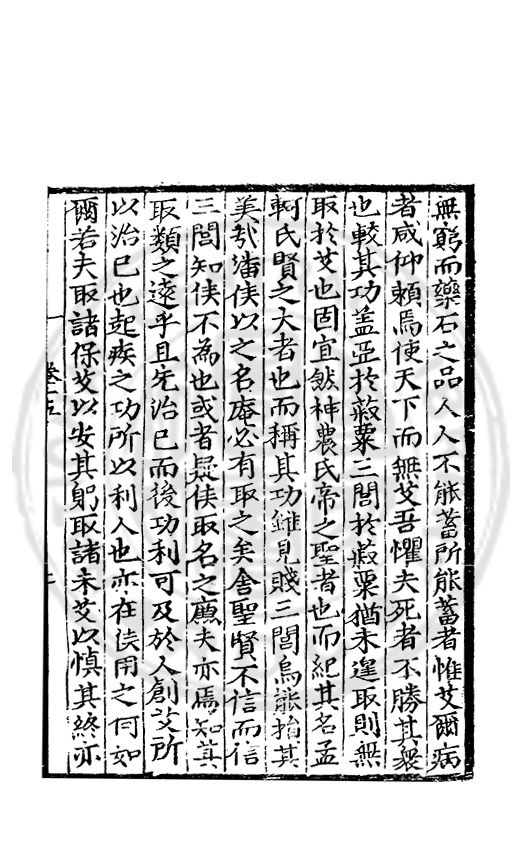 無窮而藥石之品人人不能蓄所能蓄者惟艾爾病
者咸仰賴焉使天下而無艾吾懼夫死者不勝其衆
也較其功蓋亞於菽粟三閭於菽粟猶未遑取則無
取於艾也固宜然神農氏帝之聖者也而紀其名孟
軻氏賢之大者也而稱其功雖見賤三閭烏能掩其
美哉潘侯以之名庵必有取之矣舍聖賢不信而信
三閭知侯不為也或者疑侯取名之應夫亦焉知其
取類之遠乎且先治已而後功利可及於人創艾所
以治已也起疾之功所以利人也亦在侯用之何如
爾若夫取諸保艾以安其躬取諸未艾以慎其終亦
卷五